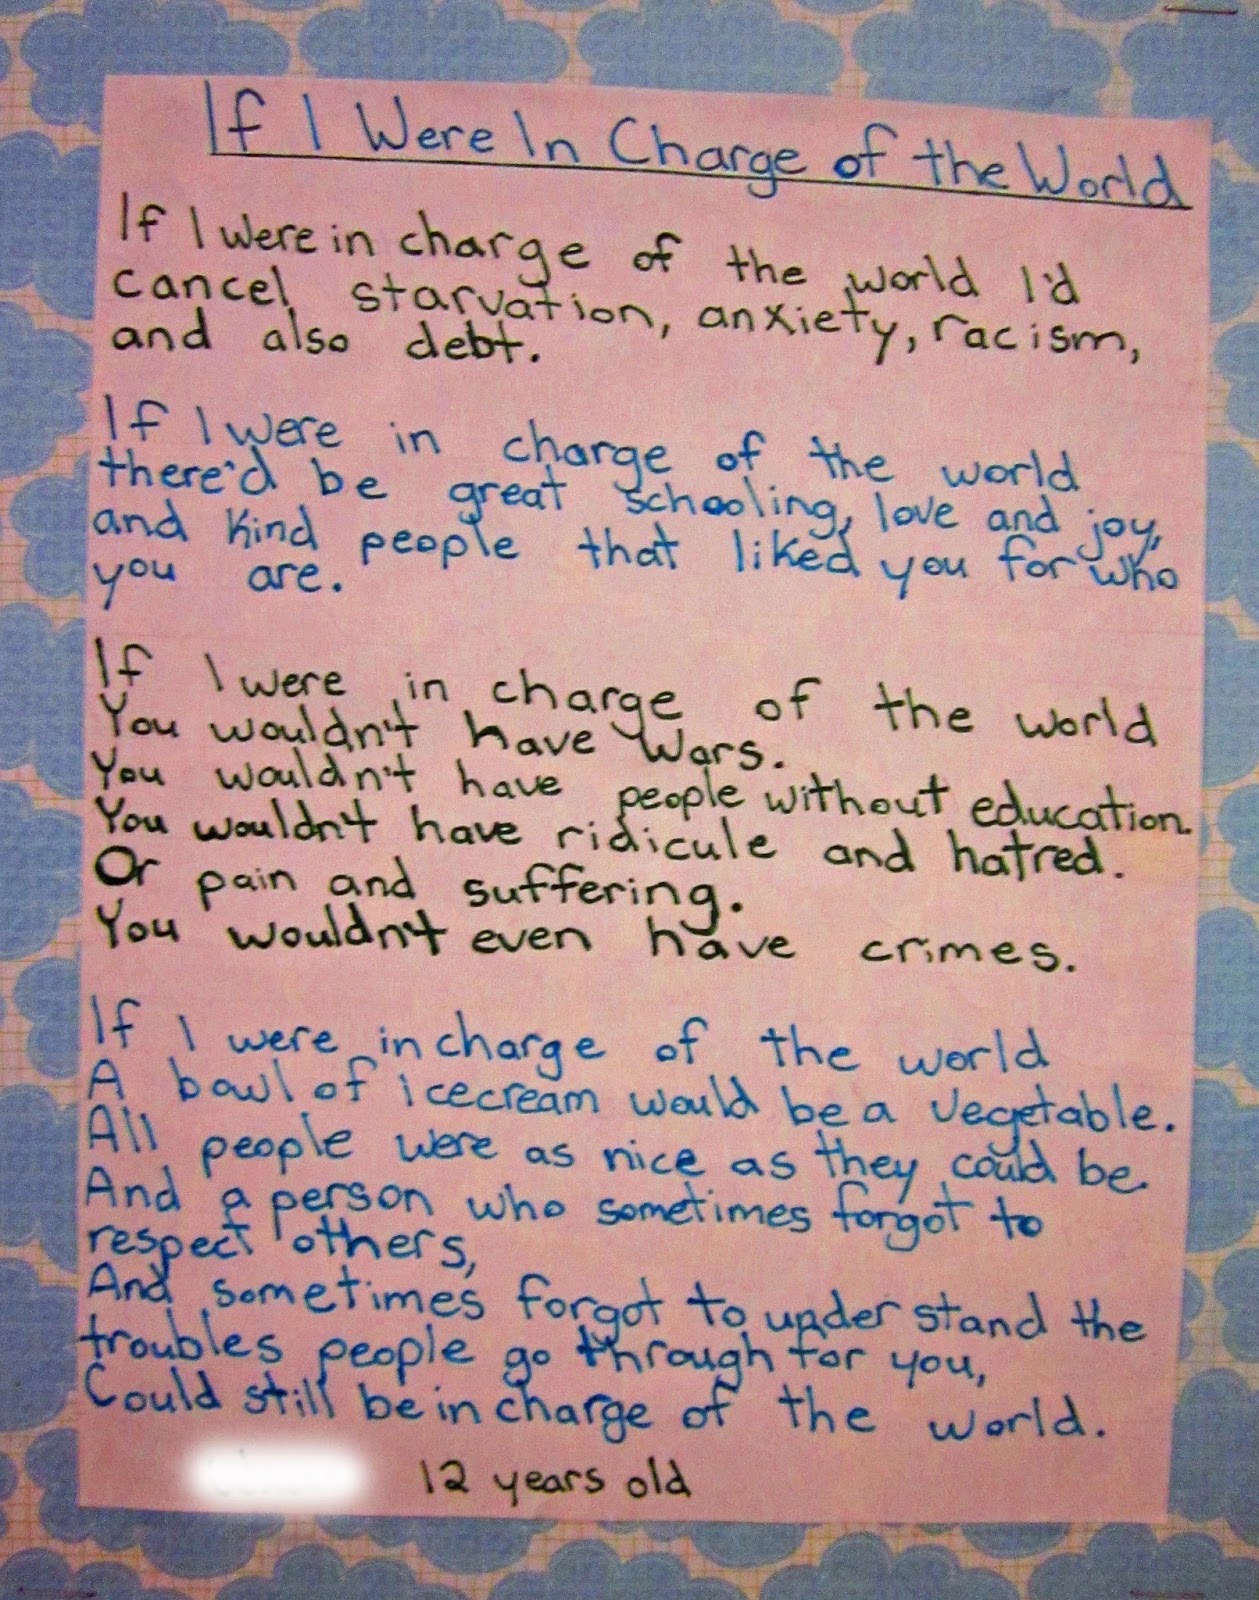 If I Were In Charge of the World
If I were in charge of the world I'd
cancel starvation, anxiety, racism,
and also debt.
If I were in charge of the world
there'd be great schooling, love and joy,
and kind people that liked you for who
you are.
If I were in charge of the world
You wouldn't have wars.
You wouldn't have people without education.
You wouldn't have ridicule and hatred.
Or pain and suffering.
You wouldn't even have crimes.
If I were in charge of the world
A bowl of icecream would be a vegetable.
All people were as nice as they could be.
And a person who sometimes forgot to
respect others,
And sometimes forgot to understand the
troubles people go through for you,
Could still be in charge of the world.
12 years old